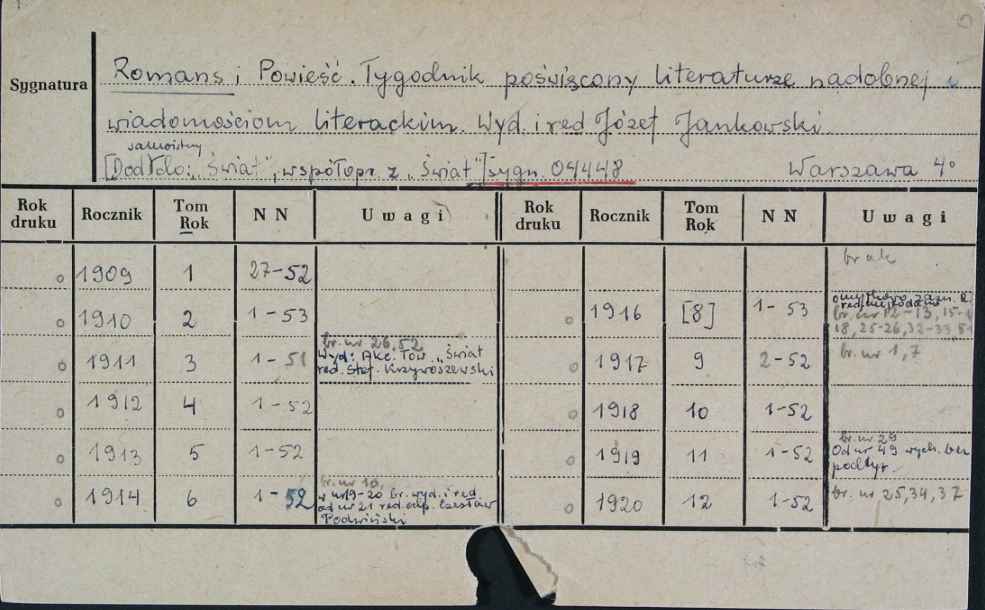 Sygnatura
Romans i Powieść. Tygodnik poświęcony literaturze nadobnej i
wiadomościom literackim. Wyd. i red Józef Jankowski
samoistny
[Dod do: „Świat", współopr. z „Świat"] sygn. 04448 Warszawa 4°
Rok druku Rocznik Tom Rok N N Uwagi Rok druku Rocznik Tom Rok N N Uwagi
1909 1 27-52
brak
1910 2 1-53
1916 [8] 1-53 br. nr 12-13, 15-
18, 25-26, 32-33, 51
1911 3 1-51 br. nr 26, 52
Wyd: Akc. Tow. „Świat
red. Stef. Krzywoszewski
1917 9 2-52 br. nr 1, 7
1912 4 1-52
1918 10 1-52
1913 5 1-52
1919 11 1-52 br. nr 29
Od nr 49 wych. bez
podtyt.
1914 6 1-52 br. nr 10,
w nr 19-20 br. wyd. i red
od nr 21 red. odp. Czesław
Podwiński
1920 12 1-52 br. nr 25, 34, 37